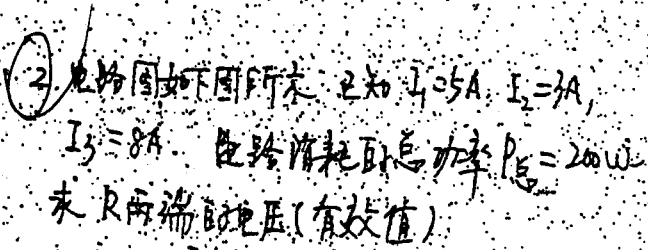 ② 电路图如下图所示 已知 I₁=5A, I₂=3A,
I₃=8A. 电路消耗的总功率 P总=200W
求 R两端的电压(有效值)